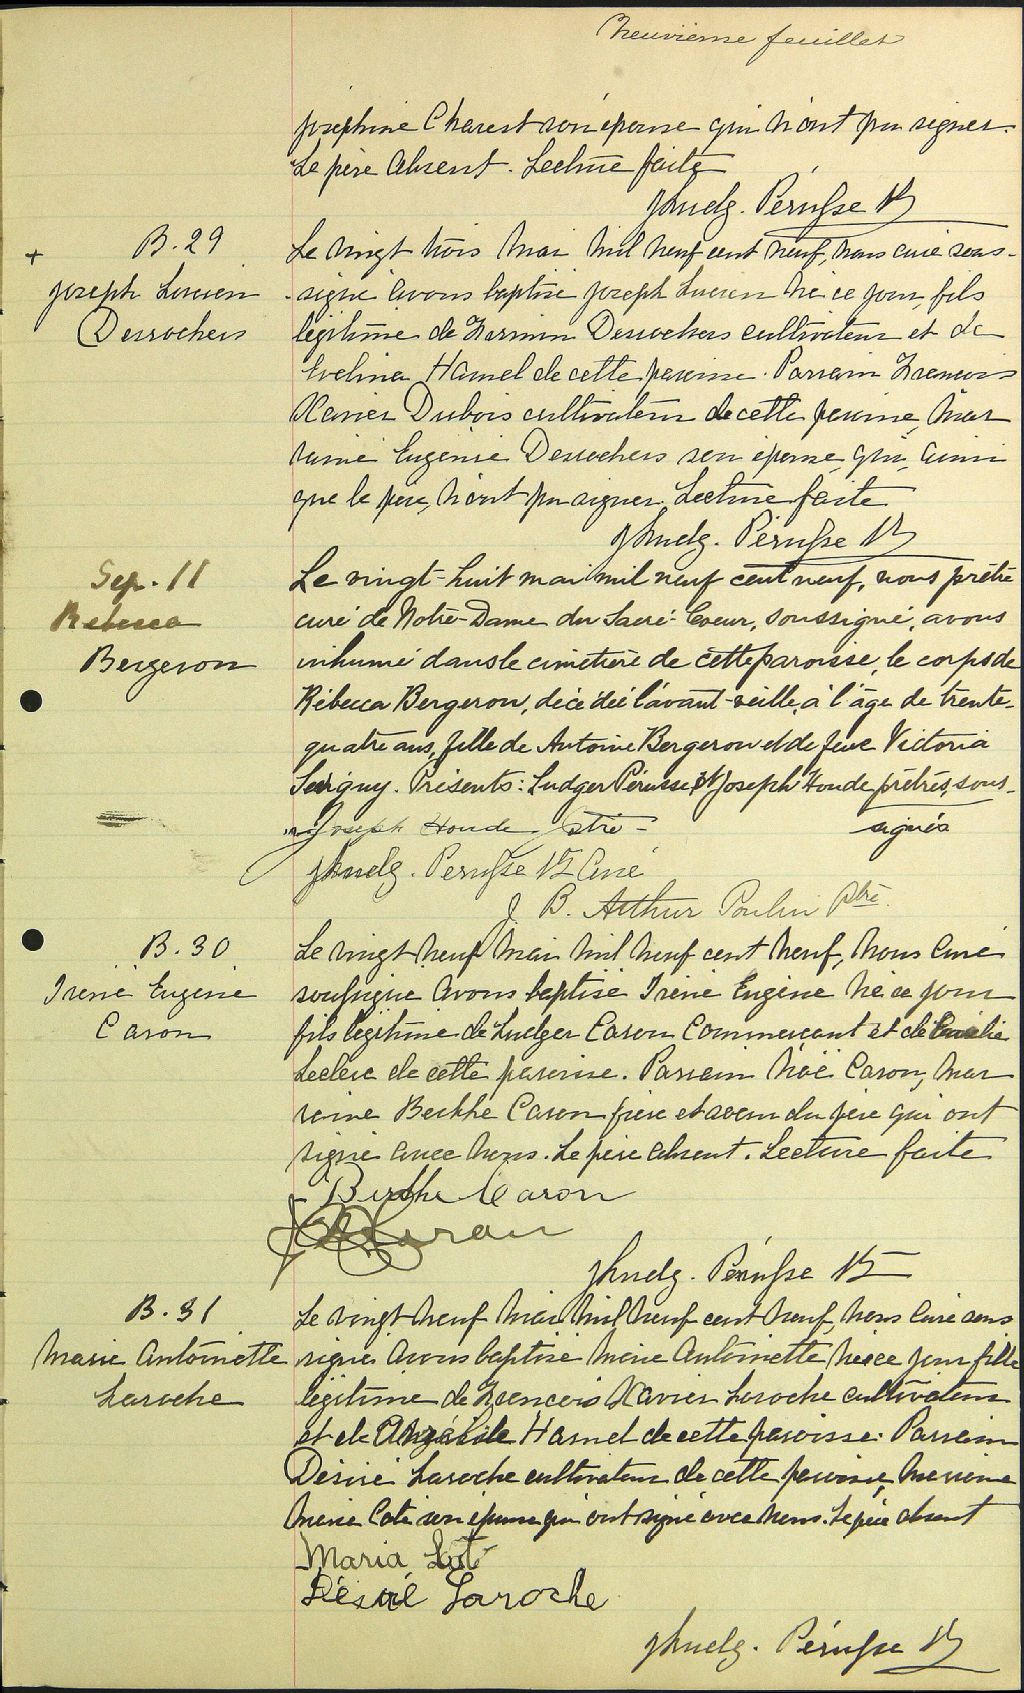 Neuvième feuillet
Joséphine Charest son épouse qui n'ont pu signer.
Le père absent. Lecture faite
Jh Ludg. Pérusse Ptr
B. 29
Joseph Lucien
Desrochers
Le vingt trois mai mil neuf cent neuf, nous curé sous-
signé avons baptisé Joseph Lucien né ce jour, fils
légitime de Firmin Desrochers cultivateur et de
Evelina Hamel de cette paroisse. Parrain Francois
Xavier Dubois cultivateur de cette paroisse, mar
raine Eugénie Desrochers son épouse, qui, ainsi
que le père, n'ont pu signer. Lecture faite
Jh Ludg. Pérusse Ptr
Sep. 11
Rebecca
Bergeron
Le vingt-huit mai mil neuf cent neuf, nous prêtre
curé de Notre-Dame du Sacré-Coeur, soussigné, avons
inhumé dans le cimetière de cette paroisse, le corps de
Rébecca Bergeron, décédée l'avant-veille, à l'âge de trente-
quatre ans, fille de Antoine Bergeron et de feue Victoria
Sévigny. Présents: Ludger Pérusse et Joseph Houde prêtres, sous-
signés
Joseph Houde Ptre
Jh Ludg. Pérusse Ptr Curé
J. B. Arthur Poulin Ptre.
B. 30
Irené Eugène
Caron
Le vingt neuf mai mil neuf cent neuf, nous curé
soussigné avons baptisé Irené Eugène né ce jour
fils légitime de Ludger Caron commerçant et de
Leclerc de cette paroisse. Parrain Noé Caron, mar
raine Berthe Caron frère et soeur du père qui ont
signé avec nous. Le père absent. Lecture faite
Berthe Caron
Caron
Jh Ludg. Pérusse Ptr
B. 31
Marie Antoinette
Laroche
Le vingt neuf mai mil neuf cent neuf, nous curé sous
signé avons baptisé Marie Antoinette née ce jour fille
légitime de Francois Xavier Laroche cultivateur
et de Hamel de cette paroisse. Parrain
Désiré Laroche cultivateur de cette paroisse, marraine
Marie Coté son épouse qui ont signé avec nous. Le père absent
Maria Coté
Désiré Laroche
Jh Ludg. Pérusse Ptr